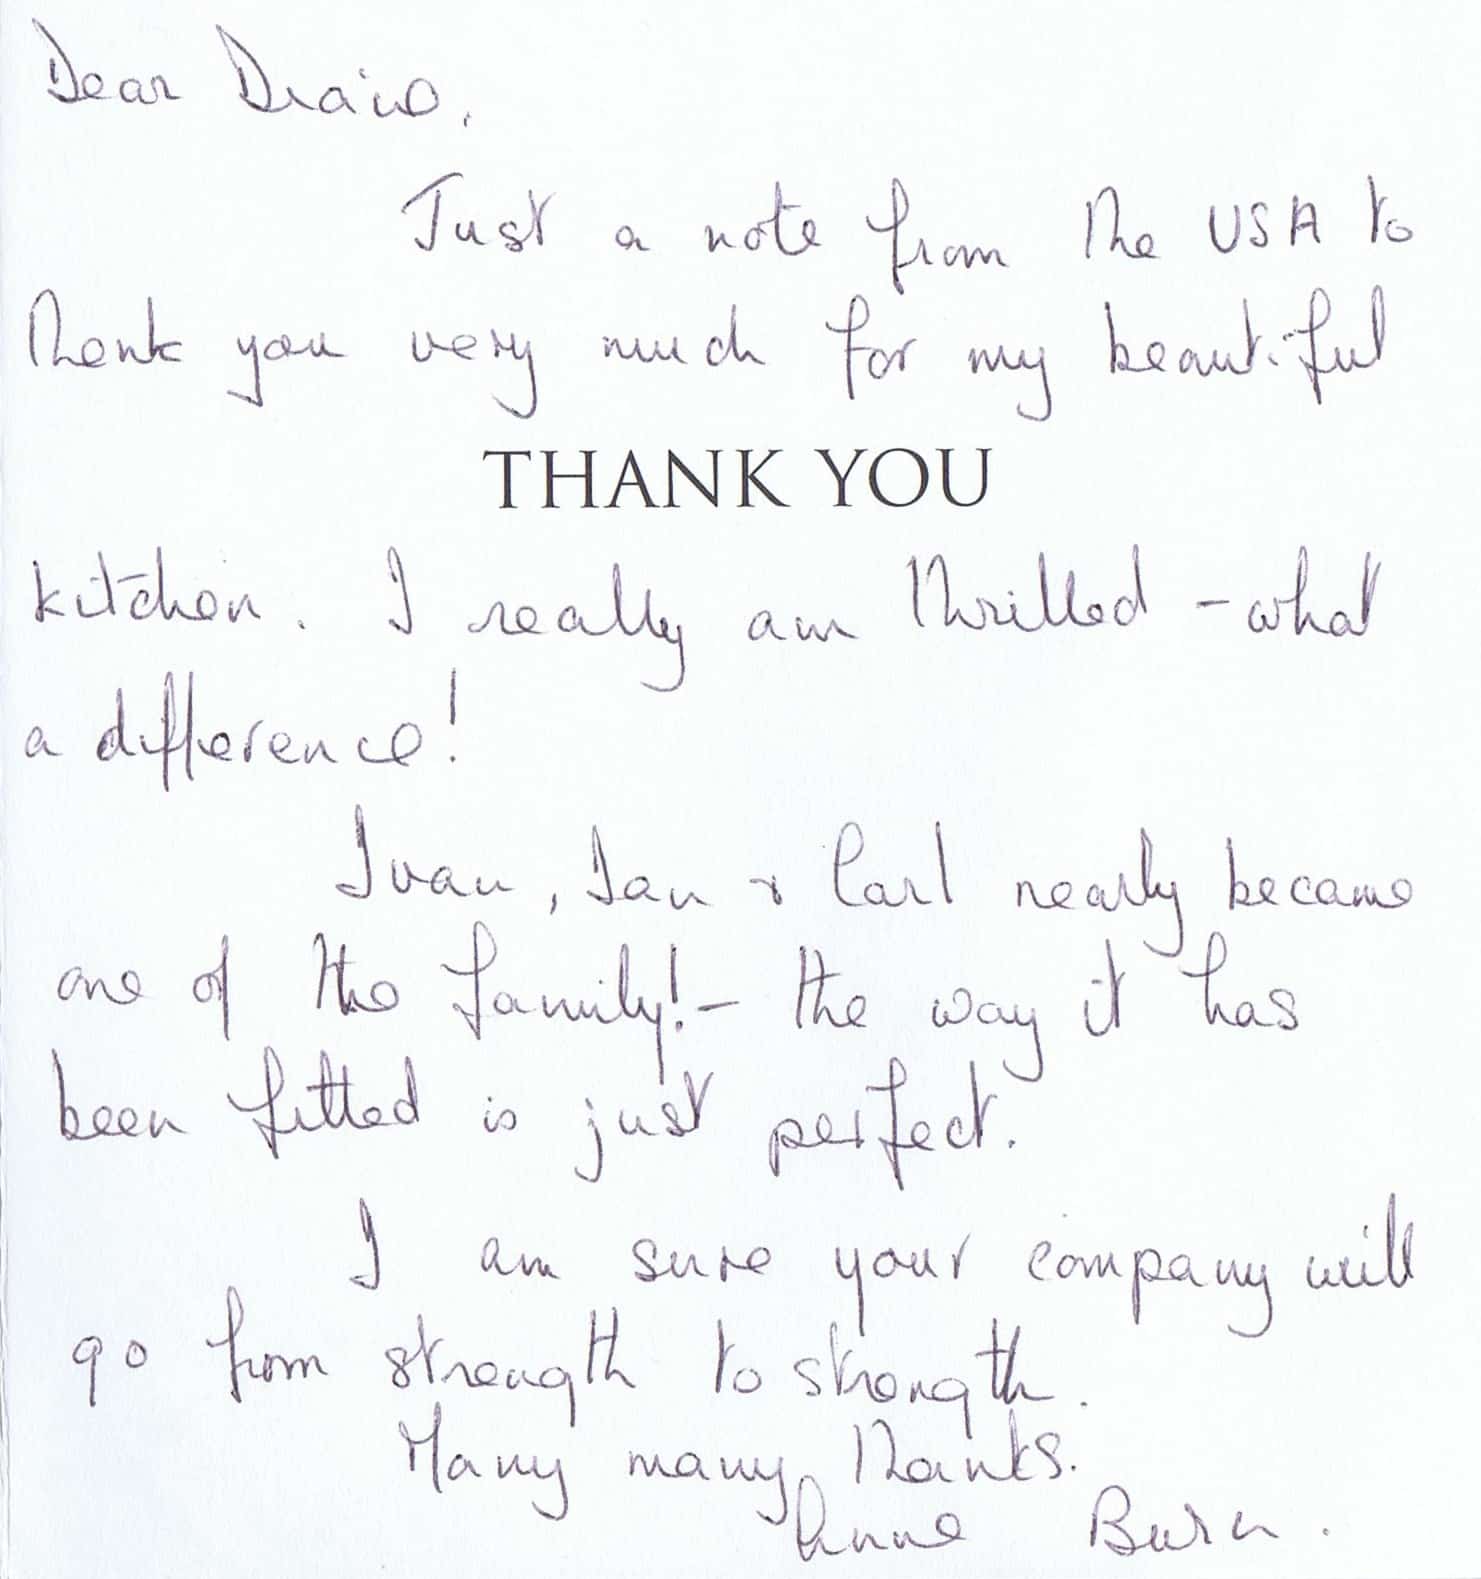 Dear
Just a note from the USA to
thank you very much for my beautiful
THANK YOU
kitchen. I really am thrilled - what
a difference!
Ivan, Ian & Carl nearly became
one of the family! - the way it has
been fitted is just perfect.
I am sure your company will
go from strength to strength.
Many many thanks.
Anne Burn.